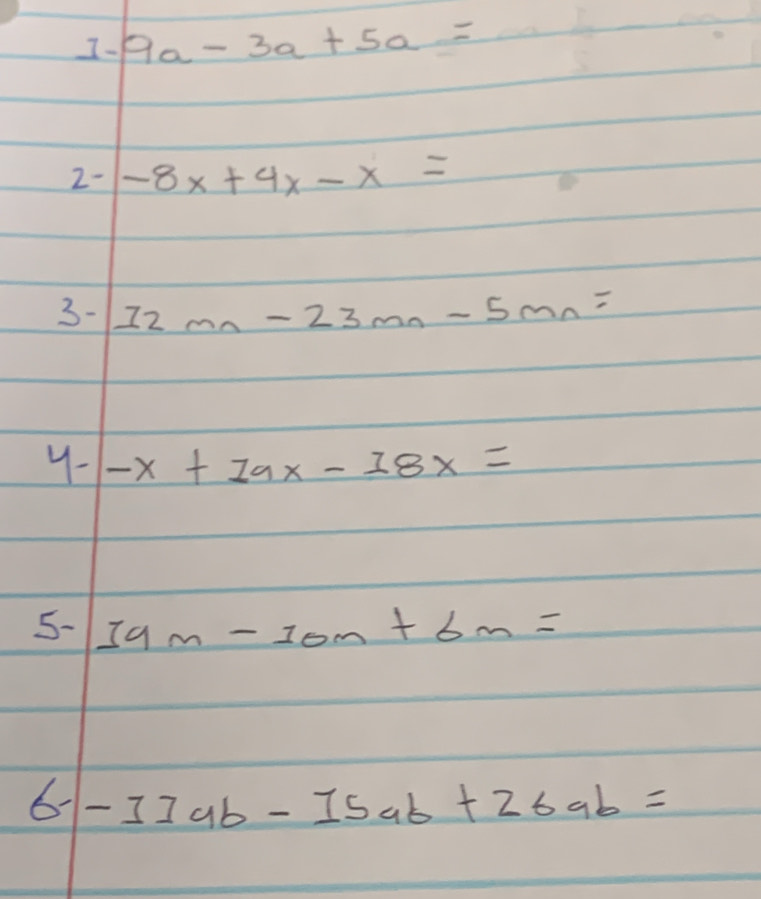 1- 9a - 3a + 5a =
2- -8x + 9x - x =
3- 12 mn - 23mn - 5mn =
4- -x + 19x - 18x =
5- 19m - 10m + 6m =
6- -11ab - 15ab + 26ab =